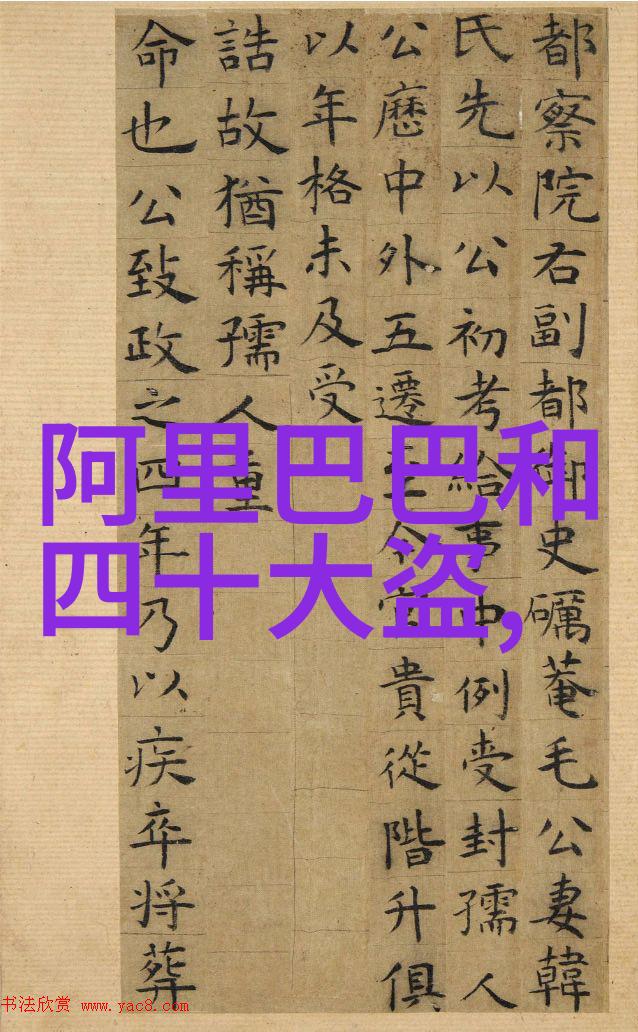 都察院右副都御史礪菴毛公妻韓
氏先以公初考給事中例受封孺人
公歷中外五遷至今官貴從階升俱
以年格未及受
誥故猶稱孺人重
命也公致政之四年乃以疾卒将葬
阿里巴巴和
四十大盗,
书法欣赏 www.yac8.com